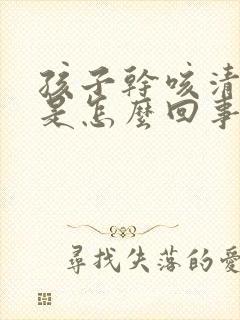 孩子幹咳清
是怎麼回事
尋找失落的愛